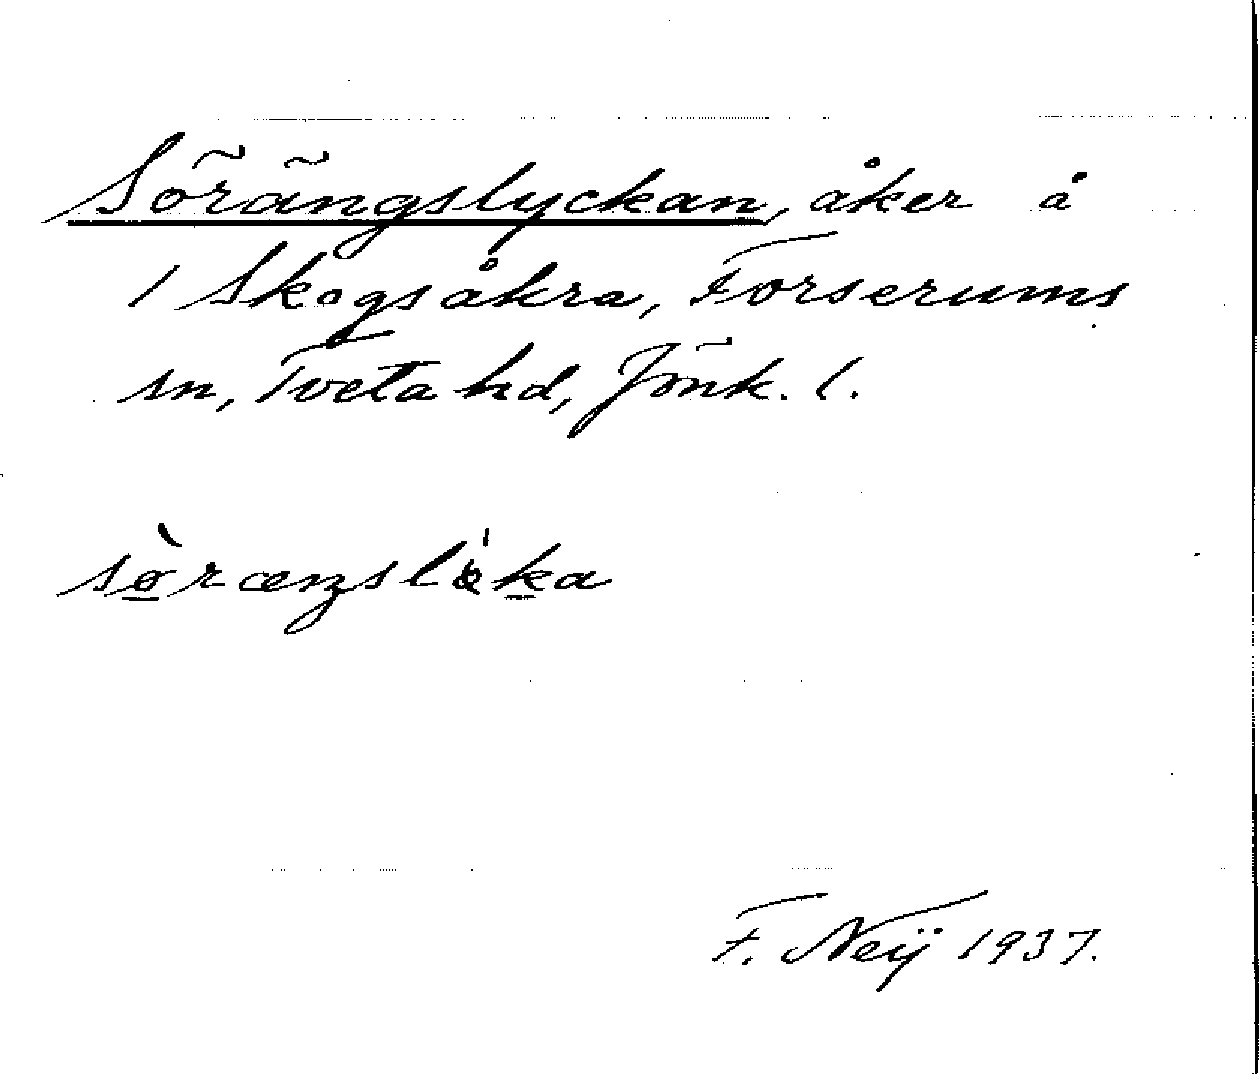 Sörängslyckan, åker å
1 Skogsåkra, Forserums
sn, Tveta hd, Jönk. l.
sø̱̀ræŋslø̀ḵa
F. Neij 1937.